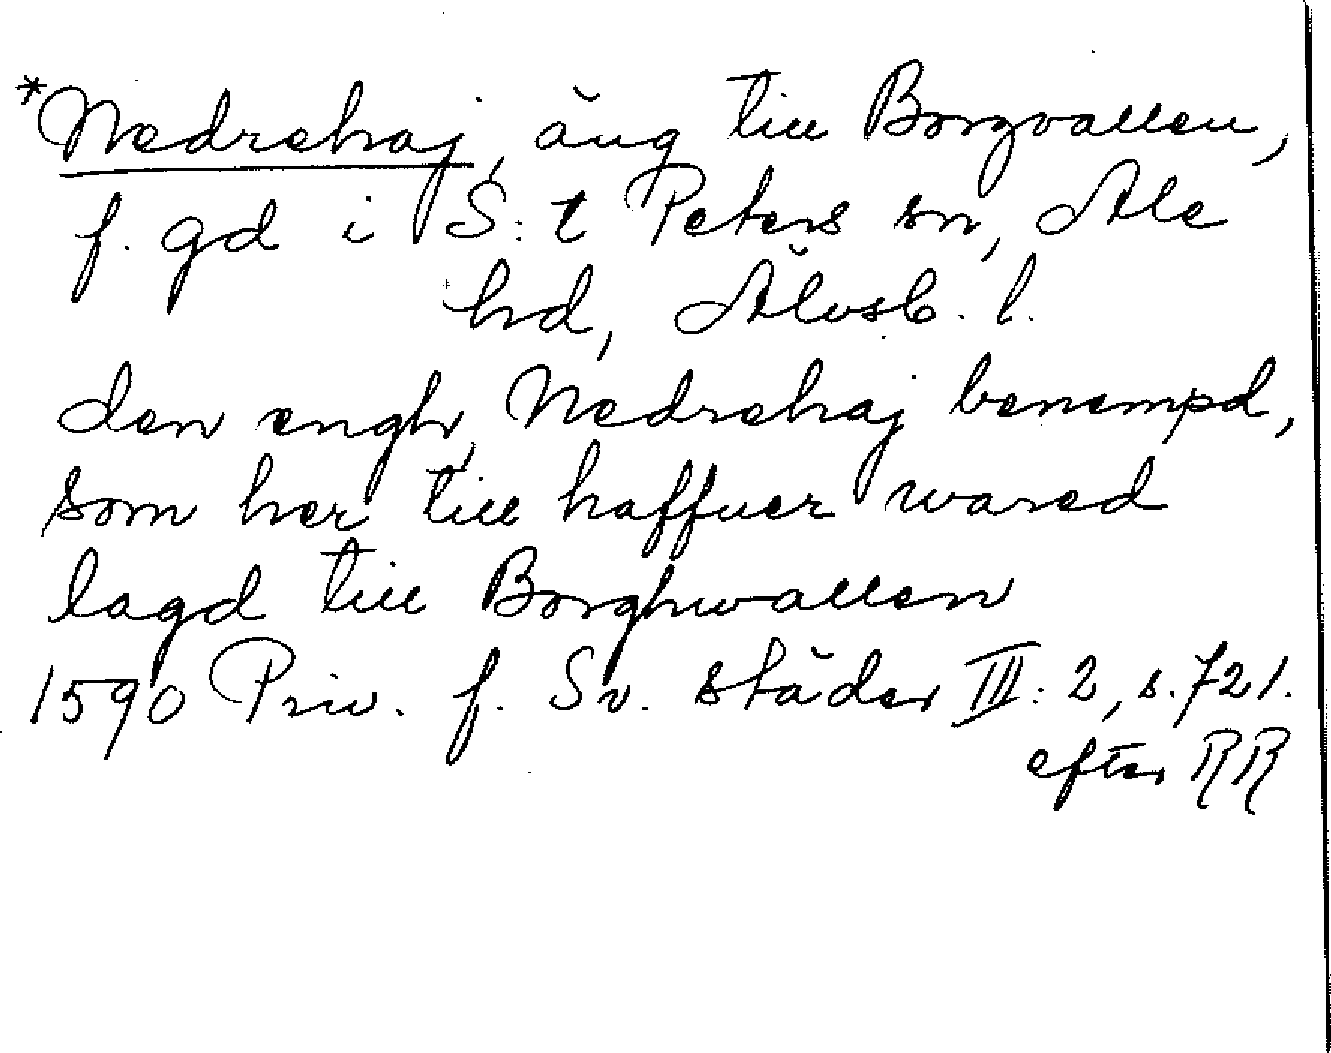 *Nedrehaj, äng till Borgvallen,
f. gd i S:t Peters sn, Ale
hd, Älvsb. l.
den engh, Nedrehaj benempd,
som her till haffuer wared
lagd till Borghwallen
1590 Priv. f. Sv. städer III:2, s. 721.
efter RR